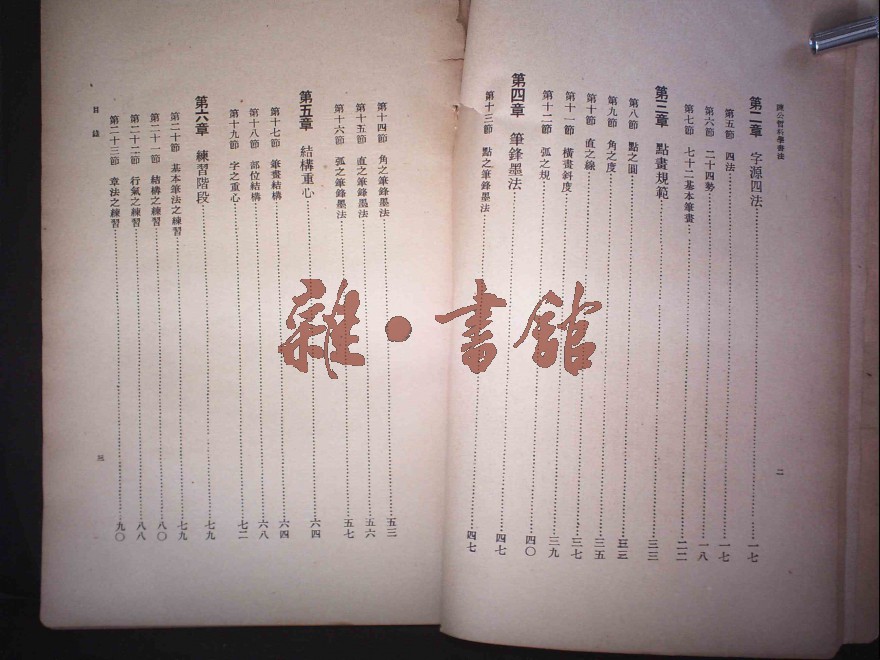 陳公哲科學書法
第二章 字源四法 一七
第五節 四法 一七
第六節 二十四勢 一八
第七節 七十二基本筆畫 二二
第三章 點畫規範 三三
第八節 點之圓 三三
第九節 角之度 三五
第十節 直之線 三七
第十一節 橫畫斜度 三九
第十二節 弧之規 四〇
第四章 筆鋒墨法 四七
第十三節 點之筆鋒墨法 四七
二
第十四節 角之筆鋒墨法 五三
第十五節 直之筆鋒墨法 五六
第十六節 弧之筆鋒墨法 五七
第五章 結構重心 六四
第十七節 筆畫結構 六四
第十八節 部位結構 六八
第十九節 字之重心 七二
第六章 練習階段 七九
第二十節 基本筆法之練習 七九
第二十一節 結構之練習 八〇
第二十二節 行氣之練習 八八
第二十三節 章法之練習 九〇
目錄
三
雜·書館